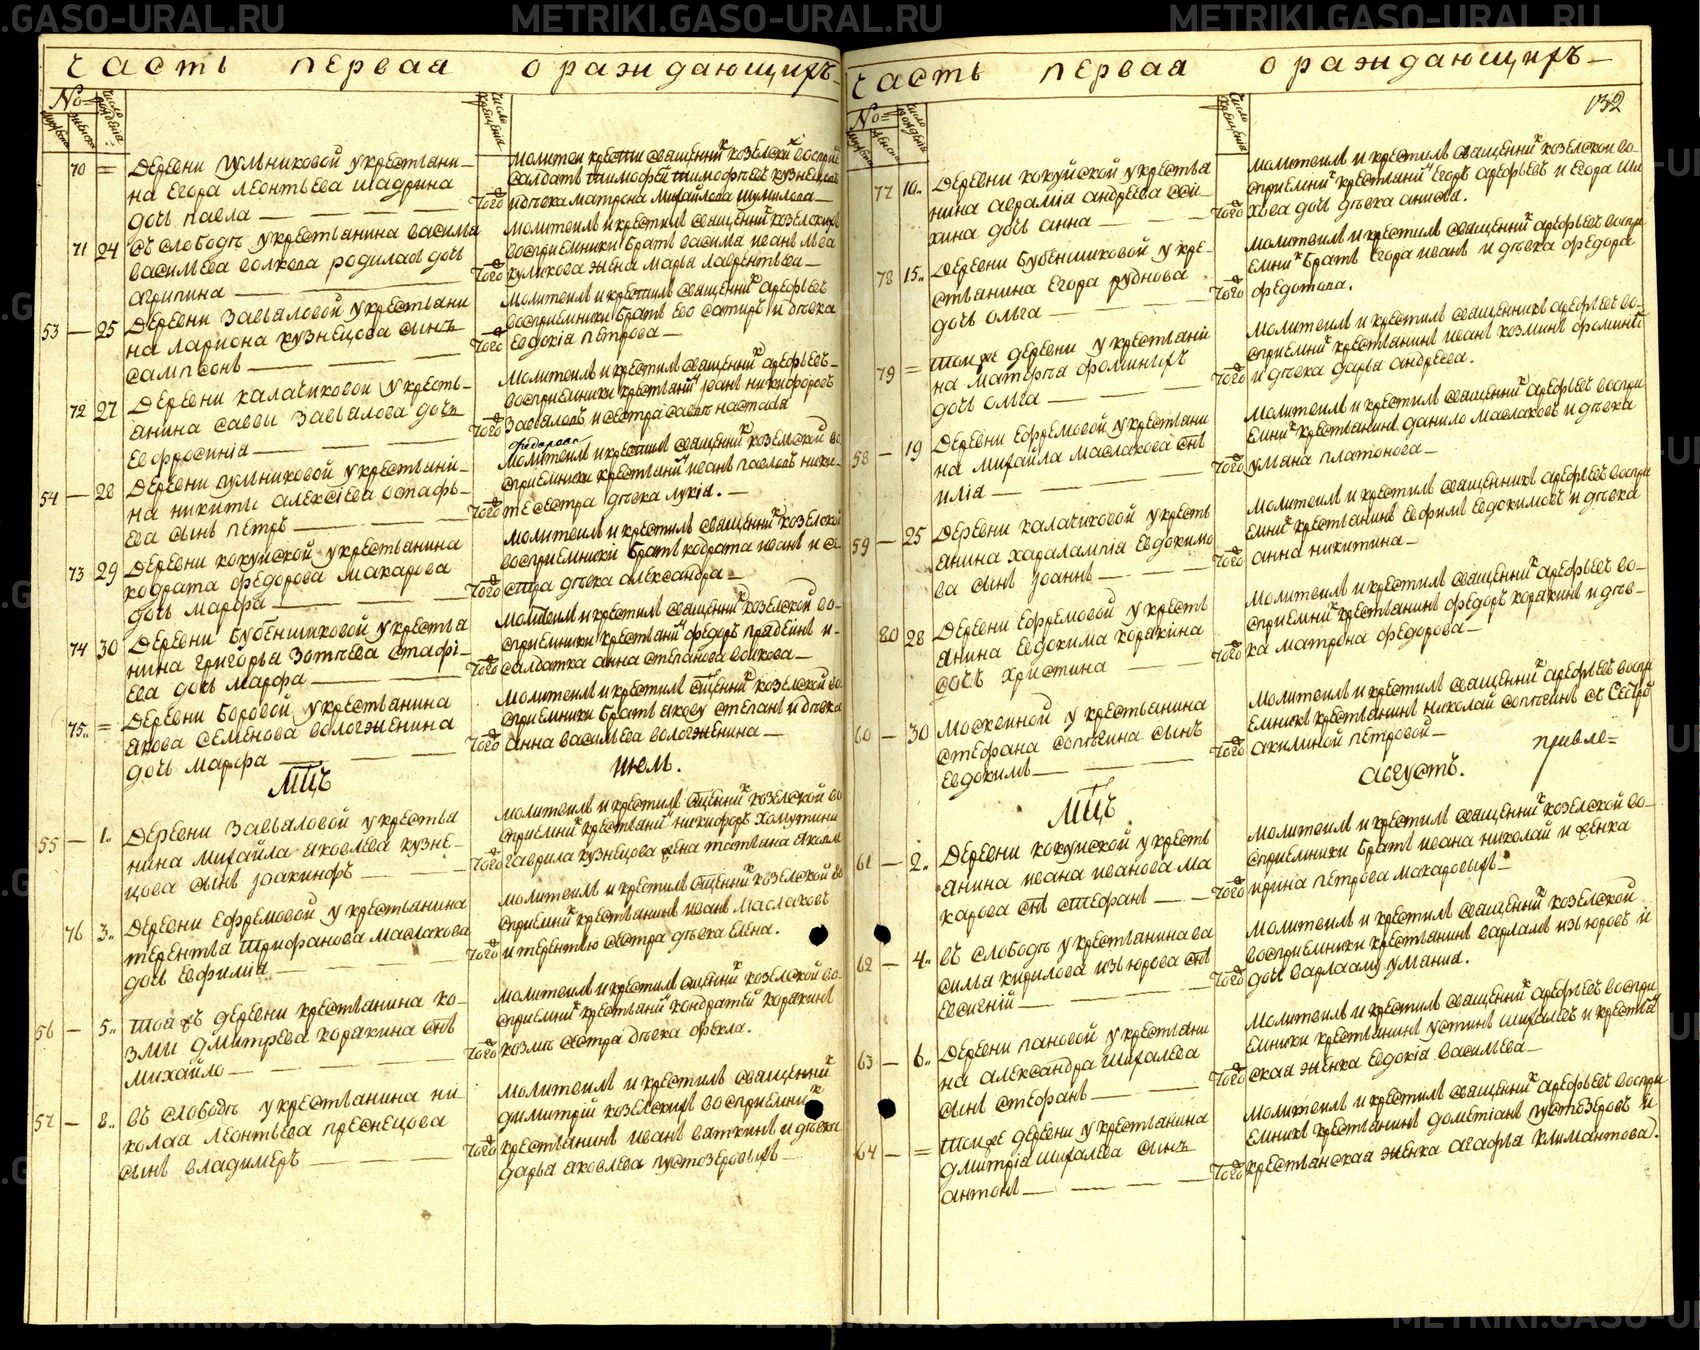 METRIKI.GASO-URAL.RU
часть первая о раждающихъ
№
70 = деревни пульниковой у крестьяни-
на Егора Леонтьева шадрина
дочь павла
того
салдатъ тимофей тимофѣевъ кузнецовъ
и дѣвка матрона Михайлова шумилова
71 24 въ слободѣ у крестьянина василья
васильева волкова родилась дочь
агрипина
того
молитвилъ и крестилъ священникъ козелскихъ
восприемники братъ василья иванъ льва
куликова жена марья лаврентьева
53 25 деревни завьяловой у крестьяни
на лариона кузнецова сынъ
сампсонъ
того
молитвилъ и крестилъ священник арефьевъ
восприемники братъ ево сатиръ и дѣвка
Евдокiа петрова
72 27 деревни калачиковой у кресть-
янина саввы завьялова дочь
Евфросинiа
того
молитвилъ и крестилъ священник арефьевъ
восприемники крестьяни иванъ никифоровъ
завьяловъ и сестра саввѣ настасья
федорова
54 28 деревни пульниковой у крестьянi-
на никиты алексiева остафь-
ева сынъ петръ
того
молитвилъ и крестилъ священник козелской во
сприемники крестьяни иванъ павловъ ники-
тѣ сестра дѣвка лукiа.
73 29 деревни кокуйской у крестьянина
кодрата федорова макарова
дочь марфа
того
молитвилъ и крестилъ священник козелской
восприемники братъ кодрата иванъ и се-
стра дѣвка александра
74 30 деревни бубенщиковой у крестья
нина григорья зотѣева стафi-
ева дочь марфа
того
молитвилъ и крестилъ священник козелской во-
сприемники крестьяни федоръ прядеинъ и
салдатка анна степанова волкова
75 = деревни боровой у крестьянина
якова семенова вологженина
дочь марфа
того
молитвилъ и крестилъ сщенник козелской во
сприемники братъ якову степанъ и дѣвка
анна васильева вологженина
мцъ июль.
55 1 деревни завьяловой у крестья
нина михайла яковлева кузне-
цова сынъ иоакинфъ
того
молитвилъ и крестилъ сщенник козелской во
сприемни крестьяни никифоръ хомутини
гаврила кузнецова жена татьяна яковле
76 3 деревни Ефремовой у крестьянина
терентья трифанова маслакова
дочь евфилиа
того
молитвилъ и крестилъ сщенник козелской во
сприемник крестьянинъ иванъ маслаковъ
и терентью сестра дѣвка елена.
56 5 тойжъ деревни крестьянина ко-
змы дмитрева корякина снъ
михайло
того
молитвилъ и крестилъ сщенник козелской во-
сприемник крестьяни кондратей корякинъ
козмѣ сестра дѣвка фекла.
57 8 въ слободѣ у крестьянина ни-
колая леонтьева преснецова
сынъ владимеръ
того
молитвилъ и крестилъ священник
димитрiй козелскихъ восприемник
крестьянинъ иванъ вяткинъ и дѣвка
дарья яковлева пустозеровыхъ
часть первая о раждающихъ
132
№
77 10 деревни кокуйской у крестья
нина аврамiа андреева
хина дочь анна
того
молитвилъ и крестилъ священник козелской во-
сприемник крестьяни Егоръ арефьевъ и Егора ши
хова дочь дѣвка анисья.
78 15 деревни бубенщиковой у кре-
стьянина Егора руднова
дочь ольга
того
молитвилъ и крестилъ священник арефьевъ воспри
емник братъ Егора иванъ и дѣвка федора
федотова.
79 = тойже деревни у крестьянi
на матфѣя фоминыхъ
дочь ольга
того
молитвилъ и крестилъ священникъ арефьевъ во-
сприемник крестьянинъ иванъ козминъ фоминыхъ
и дѣвка дарья андреева.
58 19 деревни Ефремовой у крестьяни
на михайла маслакова снъ
илiа
того
молитвилъ и крестилъ священник арефьевъ воспри
емник крестьянинъ данило маслаковъ и дѣвка
ульяна платонова
59 25 деревни калачиковой у кресть
янина харалампiа Евдокимо
ва сынъ иоаннъ
того
молитвилъ и крестилъ священникъ арефьевъ воспри
емник крестьянинъ Евфимъ Евдокимовъ и дѣвка
анна никитина
80 28 деревни Ефремовой у кресть
янина Евдокима корякiна
дочь христина
того
молитвилъ и крестилъ священник арефьевъ во-
сприемник крестьянинъ федоръ корякинъ и дѣв-
ка матрона федорова
60 30 москвиной у крестьянина
стефана сопѣгина сынъ
Евдокимъ
того
молитвилъ и крестилъ священник арефьевъ воспри
емникъ крестьянинъ николай сопѣгинъ съ сестро
акилиной петровой
мцъ августъ.
61 2 деревни кокуйской у кресть
янина ивана иванова ма
карова снъ стефанъ
того
молитвилъ и крестилъ священник козелской во-
сприемники братъ ивана николай и женка
ирина петрова макаровыхъ
62 4 въ слободѣ у крестьянина ва
силья кирилова изъюрова снъ
Евсигнiй
того
молитвилъ и крестилъ священник козелской
восприемники крестьянинъ варламъ изъюровъ и
дочь варлааму ульяниа.
63 6 деревни пановой у крестьяни
на александра шихалева
сынъ стефанъ
того
молитвилъ и крестилъ священник арефьевъ воспри
емники крестьянинъ устинъ шихалевъ и крестья
ская женка Евдокiа васильева
64 = тойже деревни у крестьянина
дмитрiа шихалева сынъ
антонъ
того
молитвилъ и крестилъ священник арефьевъ воспри
емникъ крестьянинъ дометiанъ пустозеровъ и
крестьянская женка агафья климантова.